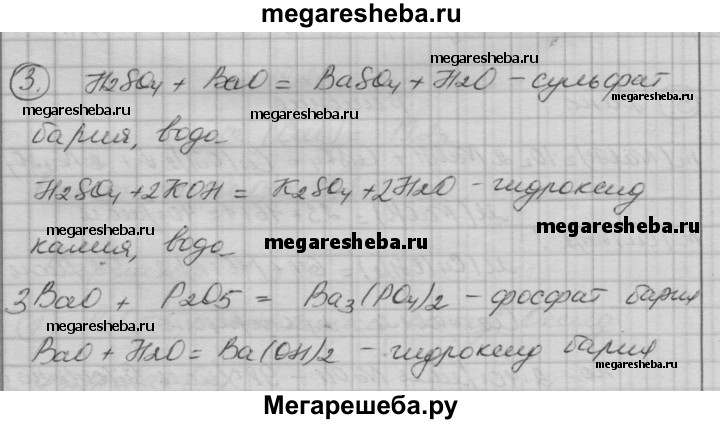 megaresheba.ru
megaresheba.ru
3. H2SO4 + BaO = BaSO4 + H2O - сульфат
megaresheba.ru megaresheba.ru
бария, вода
H2SO4 + 2KOH = K2SO4 + 2H2O - гидроксид
калия, вода megaresheba.ru megaresheba.ru
3BaO + P2O5 = Ba3(PO4)2 - фосфат бария
megaresheba.ru
BaO + H2O = Ba(OH)2 - гидроксид бария
megaresheba.ru
Мегарешеба.ру